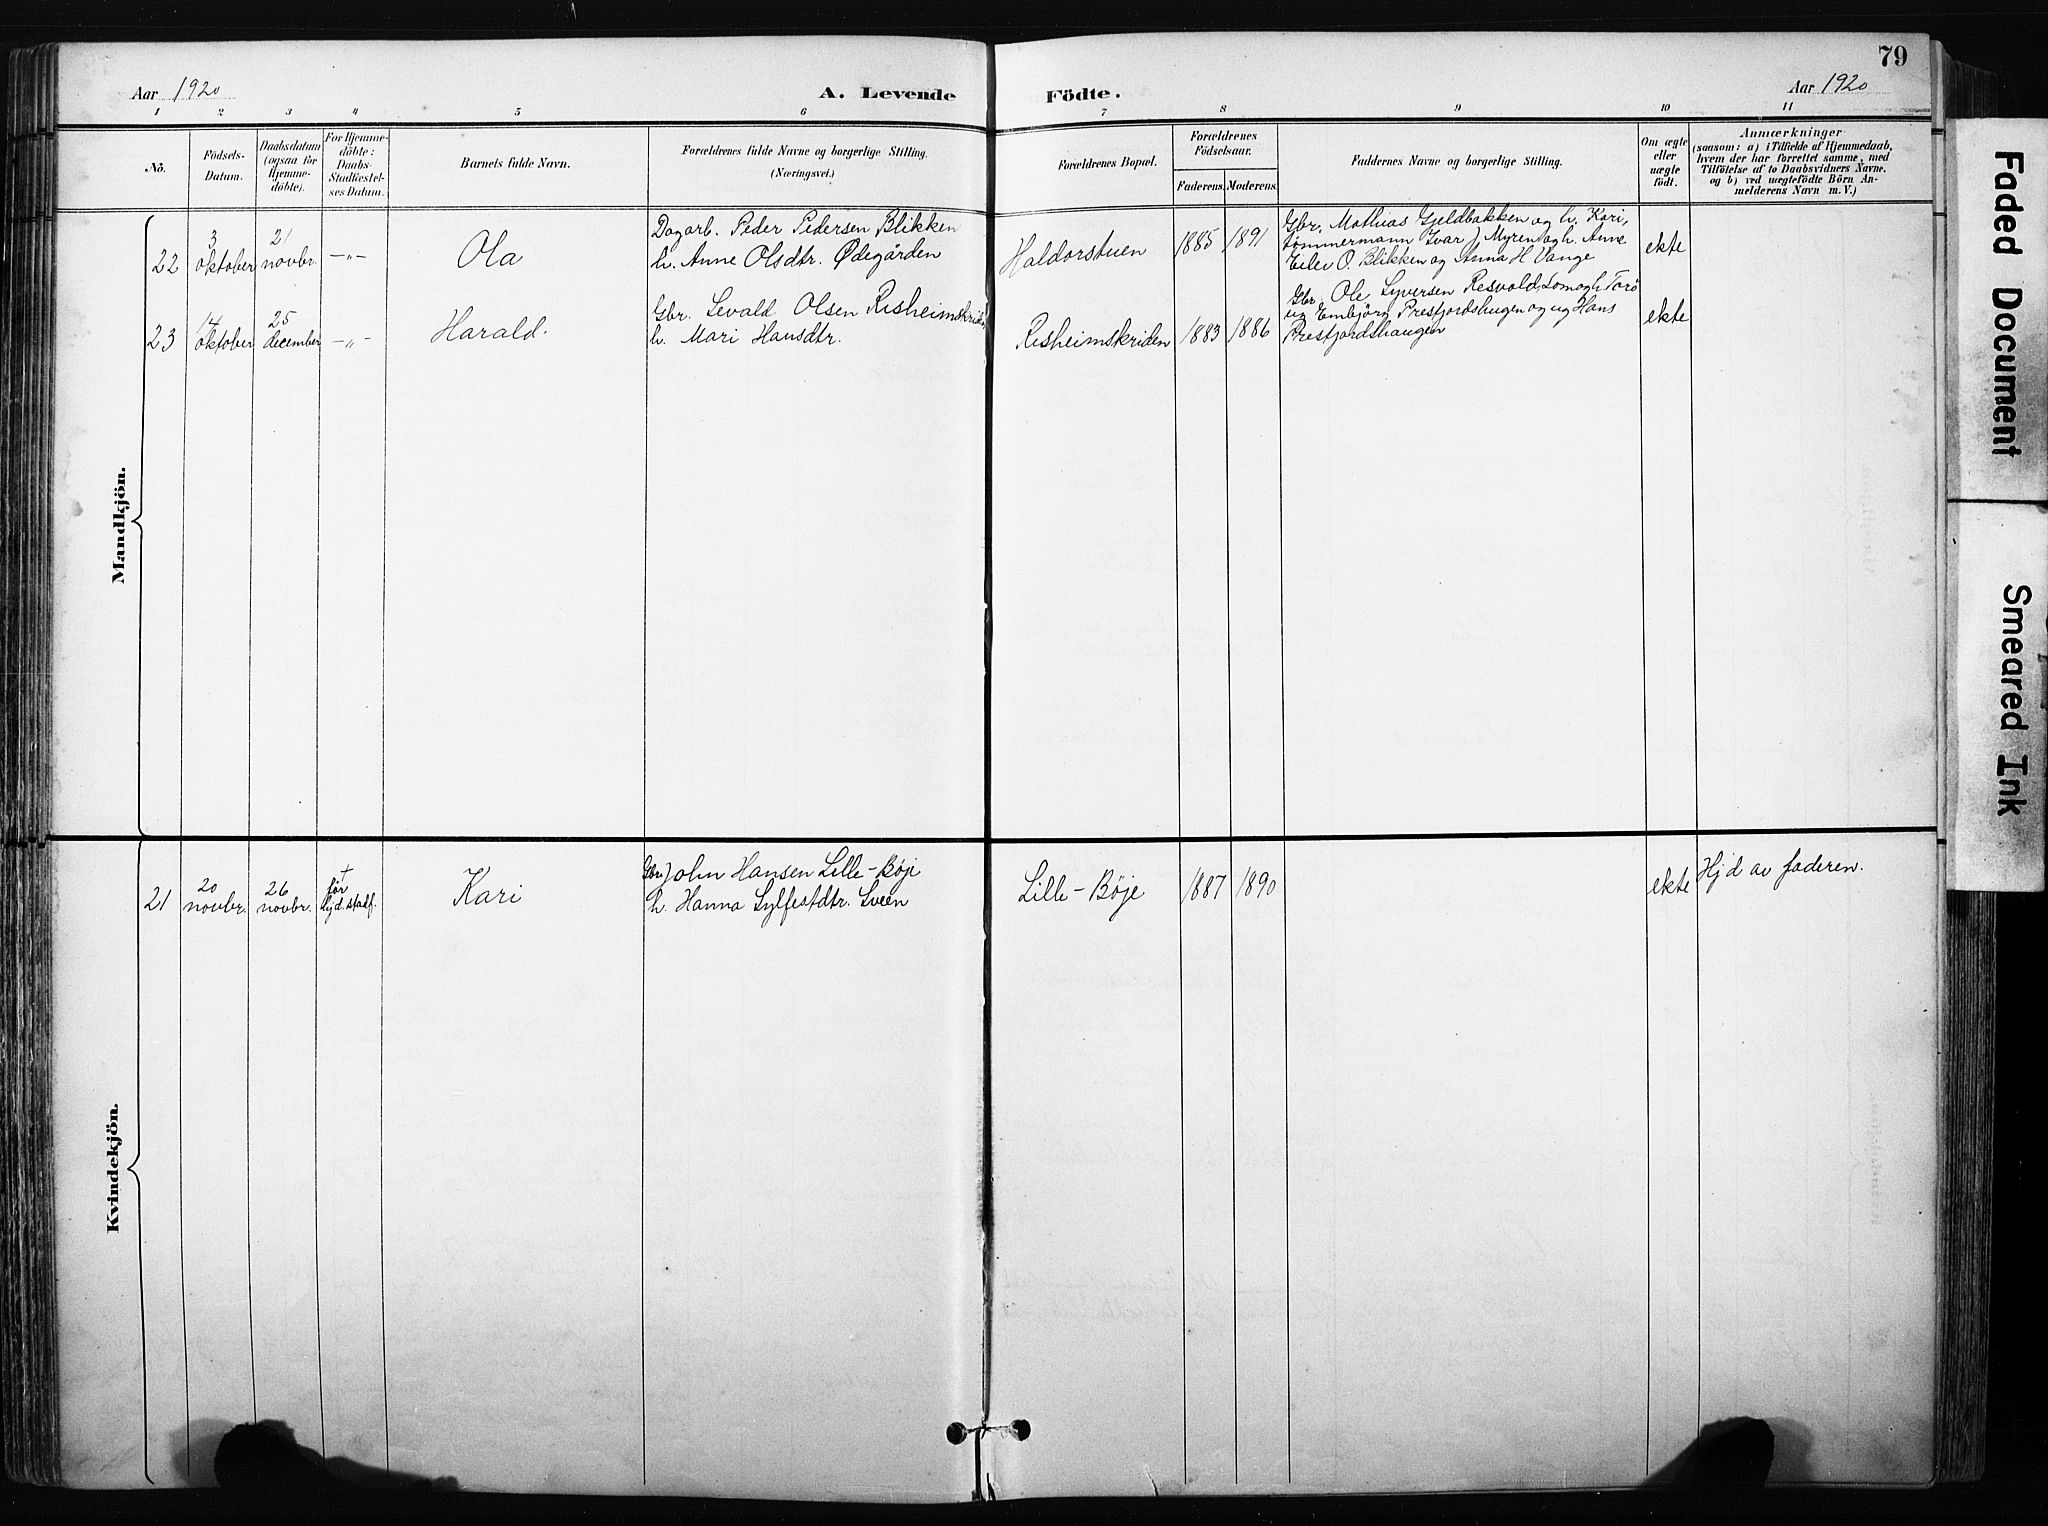 79
Aar 1920
A. Levende Födte.
Aar 1920
1 2 3 4 5 6 7 8 9 10 11
No.
Födsels-
Datum.
Daabsdatum
(ogsaa for
Hjemme-
döbte).
For Hjemme-
döbte:
Daabs-
Stadfæstel-
ses Datum.
Barnets fulde Navn.
Forældrenes fulde Navne og borgerlige Stilling.
(Næringsvei.)
Forældrenes Bopæl.
Forældrenes
Födselsaar.
Faderens. Moderens.
Faddernes Navne og borgerlige Stilling.
Om ægte
eller
uægte
født.
Anmærkninger
(saasom: a) i Tilfælde af Hjemmedaab,
hvem der har forrettet samme, med
Tilföielse af to Daabsvidners Navne,
og b) ved uægtefödte Börn An-
melderens Navn m. V.)
Mandkjön.
22
3
oktober
21
novbr.
-"-
Ola
Dagarb. Peder Pedersen Blikken
h. Anne Olsdtr. Ødegården
Haldorstuen
1885 1891
Gbr. Mathias Gjeldbakken og h. Kari,
tømmermann Ivar J. Myren og h. Anne
Eilev O. Blikken og Anna H. Vange
ekte
23
14
oktober
25
december
-"-
Harald.
Gbr. Sevald Olsen Risheimskriden
h. Mari Hansdtr.
Risheimskriden
1883 1886
Gbr. Ole Syversen Resvold, Lom og h. Torö
ug Embjørg Prestfjordshugen og ug Hans
Prestfjordshaugen
ekte
Kvindekjön.
21
20
novbr.
26
novbr.
†
før
hjd. stadf.
Kari
Gbr. John Hansen Lille-Bøje
h. Hanna Sylfestdtr. Sveen
Lille-Bøje
1887 1890
ekte
Hjd av faderen.
Faded Document
Smeared Ink